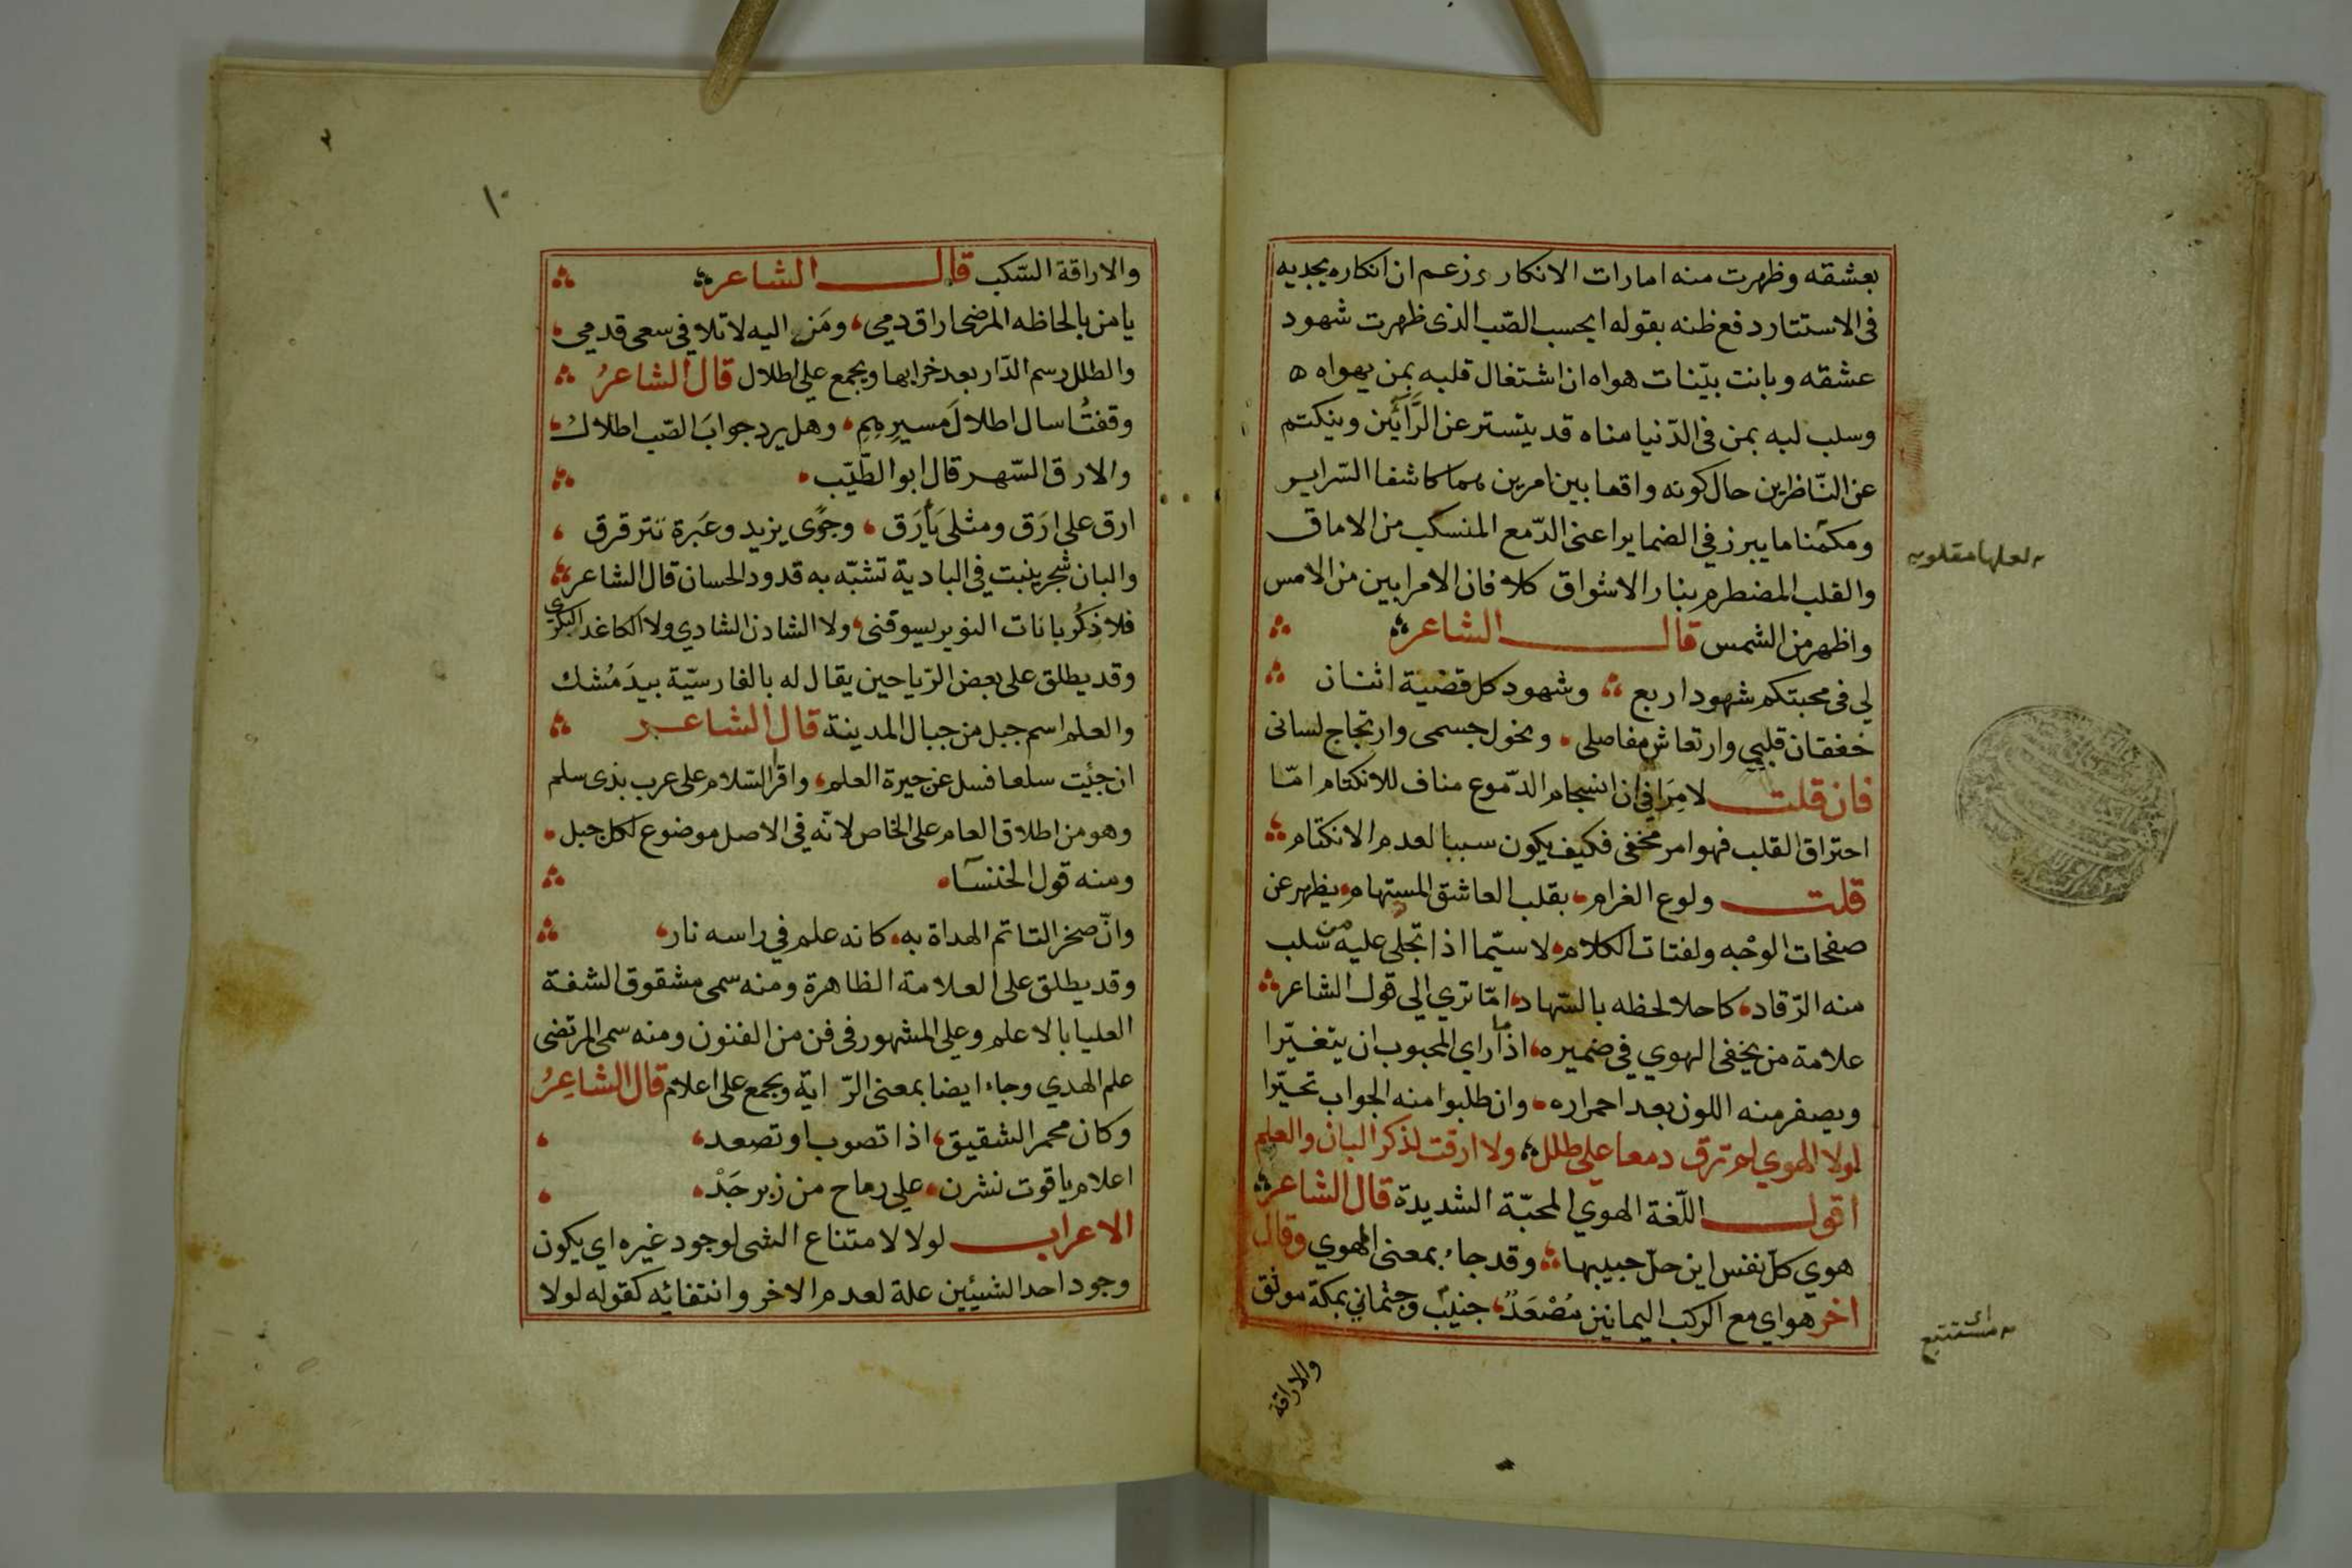 بعشقه وظهرت منه امارات الانكار وزعم ان انكاره يجديه
فى الاستتار دفع ظنه بقوله ايحسب الصّب الذى ظهرت شهود
عشقه وبانت بيّنات هواه ان اشتغال قلبه بمن يهواه ه
وسلب لبه بمن فى الدّنيا مناه قد يتستر عن الرَّائين وينكتم
عن النّاظرين حال كونه واقعا بين امرين هما كاشفا السّراير
ومكمنا ما يبرز في الضماير اعنى الدّمع المنسكب من الاماق
والقلب المضطرم بنار الاشواق كلا فان الامر ابين من الامس
واظهر من الشمس قال الشاعر
لي فى محبتكم شهود اربع وشهود كل قضية اثنان
خفقان قلبي وارتعاش مفاصلى ونحول جسمى وارتجاج لسانى
فان قلت لامِرَا في ان انسجام الدّموع مناف للانكتام امّا
احتراق القلب فهو امر مخفى فكيف يكون سببا لعدم الانكتام
قلت ولوع الغرام بقلب العاشق المستهام يظهر عن
صفحات الوجه ولفتات الكلام لا سيّما اذا تجلى عليه من سلب
منه الرّقاد كاحلا لحظه بالسّهاد امّا تري الي قول الشاعر
علامة من يخفى الهوي في ضميره اذا ما راي المحبوب ان يتغيّرا
ويصفر منه اللون بعد احمراره وان طلبوا منه الجواب تحيّرا
لولا الهوي لم ترق دمعا علي طلل ولا ارقت لذكر البان والعلم
اقول اللّغة الهوي المحبّة الشديدة قال الشاعر
هوي كلّ نفس اين حلّ حبيبها وقد جاء بمعنى المهوي وقال
اخر هواي مع الركب اليمانين مُصْعَدٌ جنيبٌ وجثماني بمكة موثق
والاراقة
لعلها مقلوبه
اى مستتبع
١٠
والاراقة السّكب قال الشاعر
يا من بالحاظه المرضى اراق دمي ومَن اليه لاتلافي سعى قدمي
والطلل رسم الدّار بعد خرابها ويجمع علي اطلال قال الشاعرُ
وقفتُ اسال اطلالَ مسيرِهِمِ وهل يرد جوابَ الصّب اطلالُ
والارق السّهر قال ابو الطّيّب
ارق على ارَق ومثلى يَأرَق وجوًى يزيد وعَبرة تترقرق
والبان شجر ينبت في البادية تشبّه به قدود الحسان قال الشاعر
فلا ذِكرُ بانات النوير يسوقنى ولا الشادن الشادي ولا الكاغد البكرى
وقد يطلق على بعض الرّياحين يقال له بالفارسيّة بيدَ مُشك
والعلم اسم جبل من جبال المدينة قال الشاعر
ان جئت سلعا فسل عن جيرة العلم واقرا السّلام على عرب بذى سلم
وهو من اطلاق العام على الخاص لانّه في الاصل موضوع لكل جبل
ومنه قول الخنسآ
وانّ صخر التاتم الهداة به كانه علم في راسه نار
وقد يطلق على العلامة الظاهرة ومنه سمى مشقوق الشفة
العليا بالاعلم وعلي المشهور فى فن من الفنون ومنه سمى المرتضى
علم الهدي وجاء ايضا بمعنى الرّاية ويجمع على اعلام قال الشاعِرُ
وكان محمر الشقيق اذا تصوب او تصعد
اعلام ياقوت نشرن علي رماح من زبرجَدْ
الاعراب لولا لامتناع الشى لوجود غيره اي يكون
وجود احد الشيئين علة لعدم الاخر وانتفائه كقوله لولا